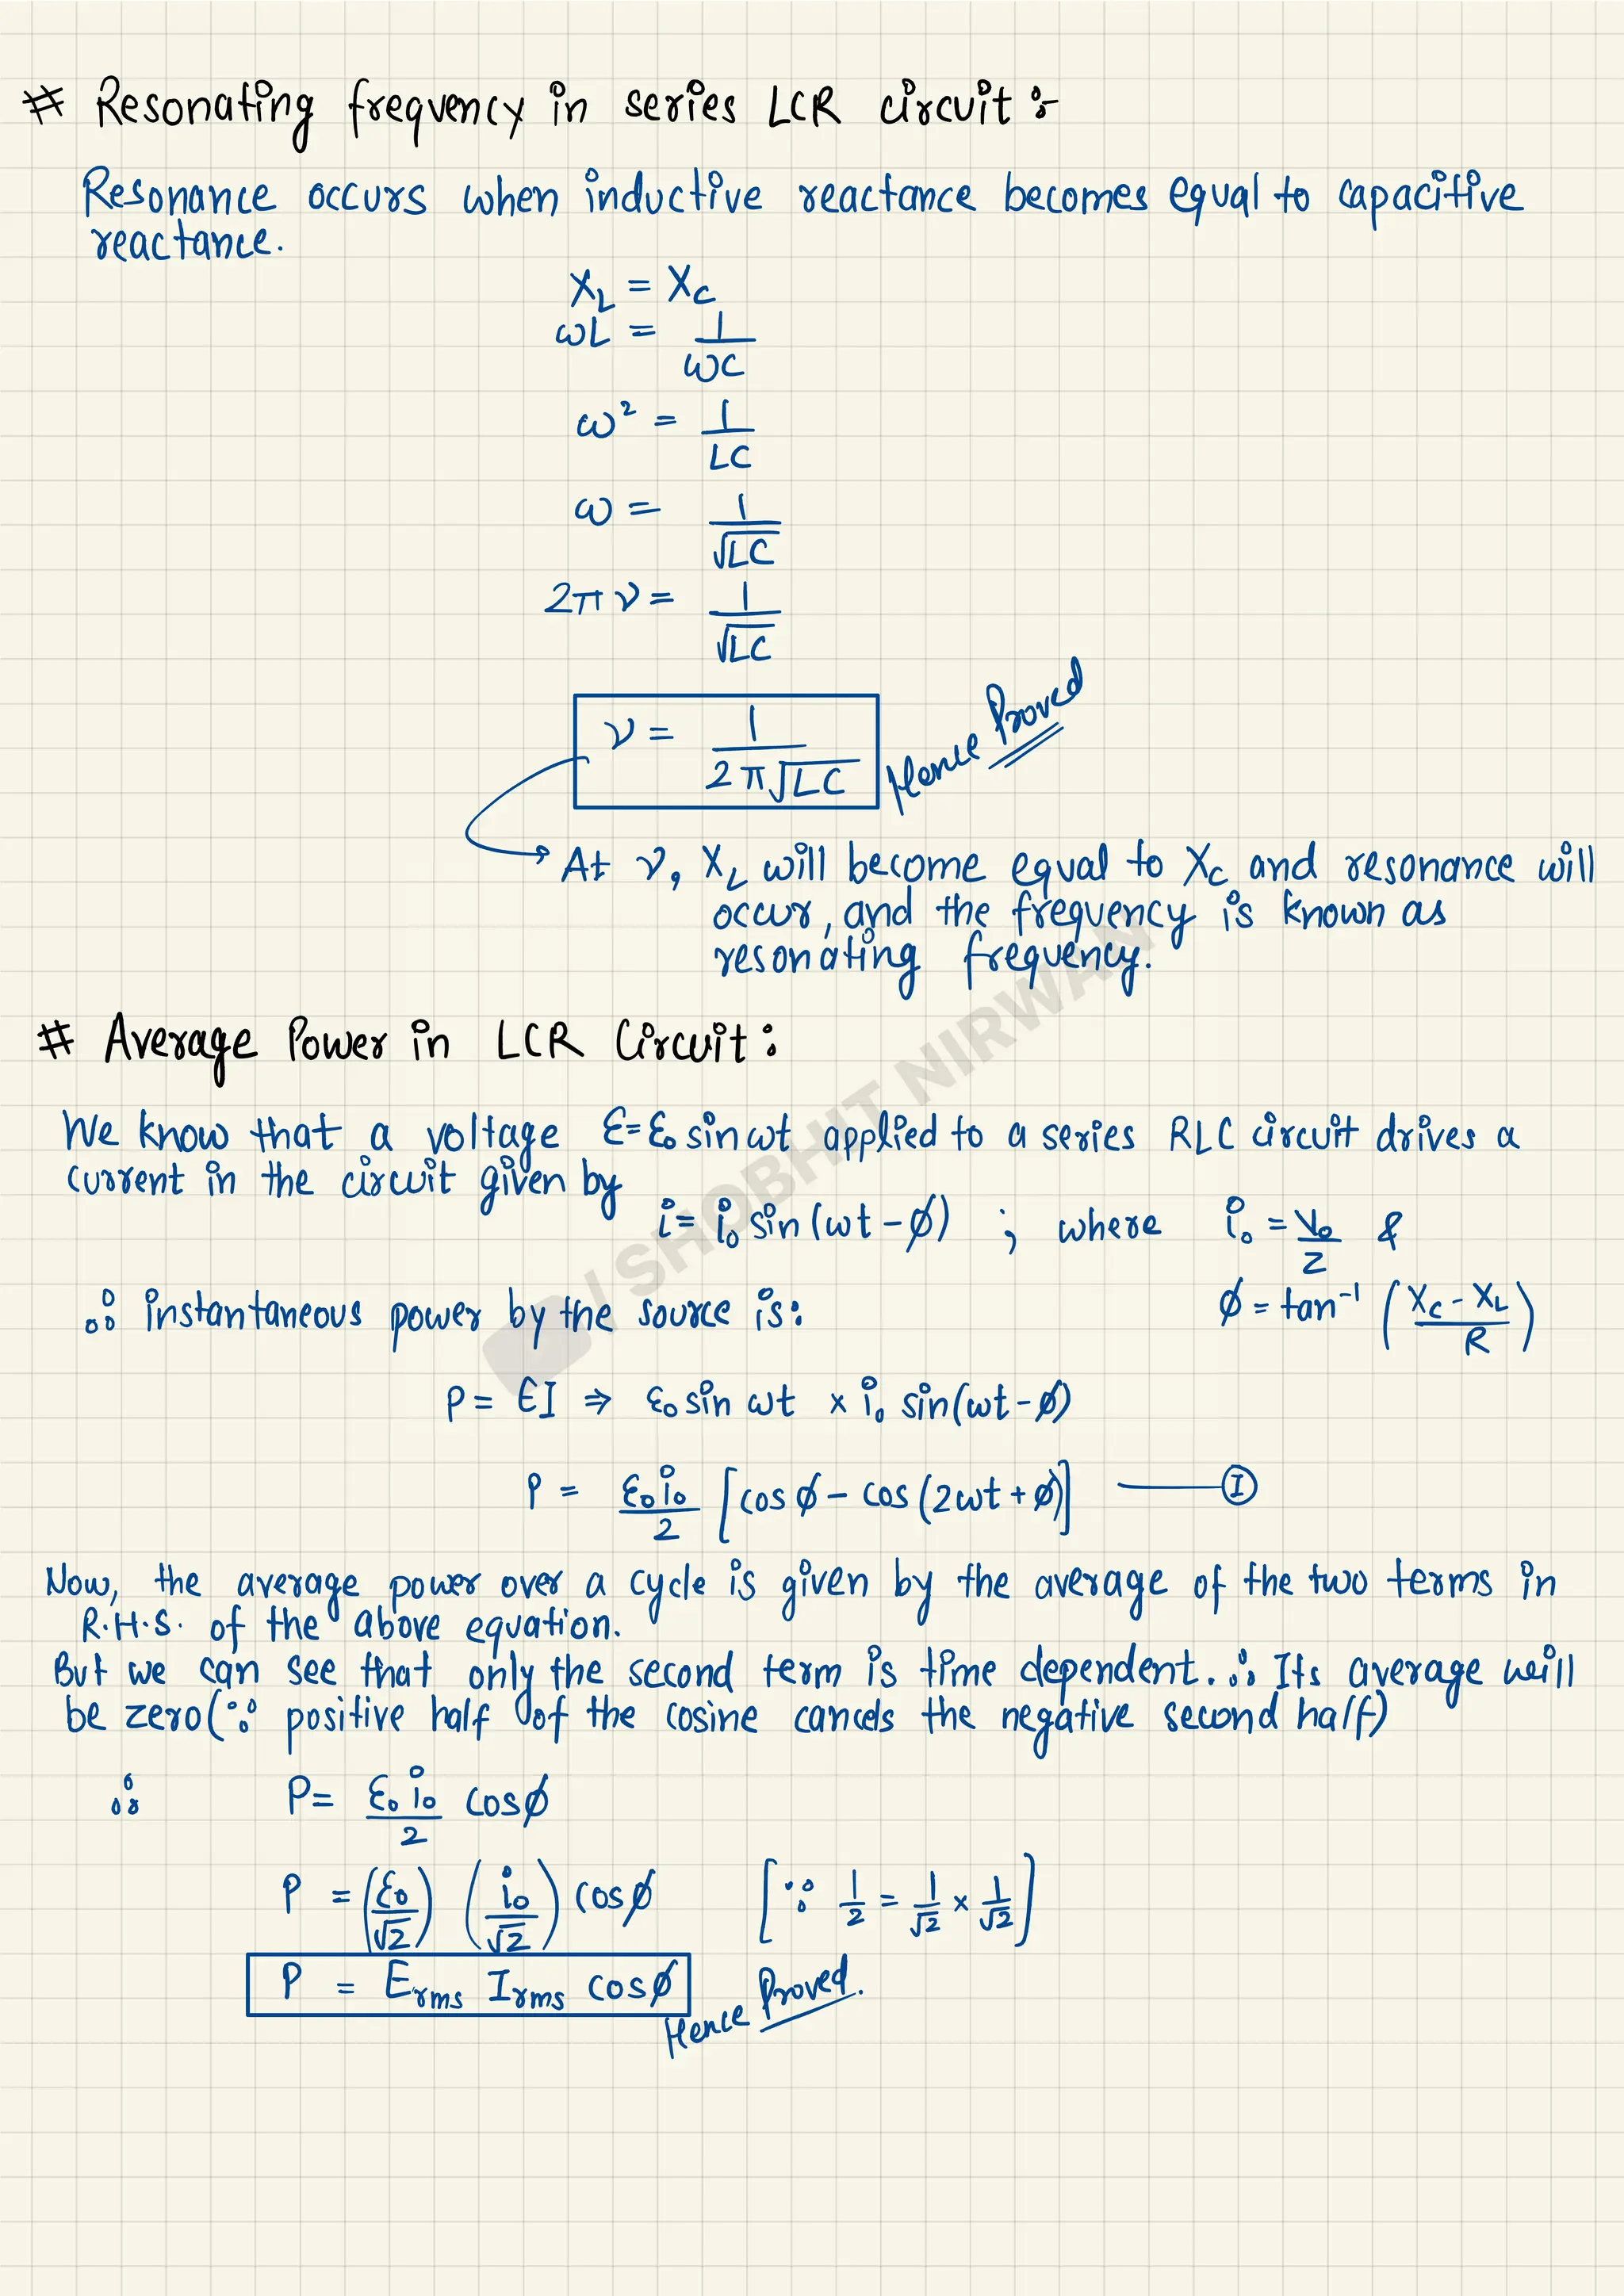 # Resonating frequency in series LCR circuit :-
Resonance occurs when inductive reactance becomes equal to capacitive
reactance.
X_L = X_C
ωL = 1/ωC
ω² = 1/LC
ω = 1/√LC
2πν = 1/√LC
ν = 1/2π√LC Hence Proved
→ At ν, X_L will become equal to X_C and resonance will
occur, and the frequency is known as
resonating frequency.
# Average Power in LCR Circuit :
We know that a voltage Ɛ=Ɛ₀ sin ωt applied to a series RLC circuit drives a
current in the circuit given by
i = i₀ sin (ωt - φ) ; where i₀ = V₀/Z &
φ = tan⁻¹ (X_C - X_L / R)
∴ instantaneous power by the source is:
P = ƐI ⇒ Ɛ₀ sin ωt × i₀ sin(ωt - φ)
P = Ɛ₀i₀/2 [cos φ - cos (2ωt + φ)] —— Ⓘ
Now, the average power over a cycle is given by the average of the two terms in
R.H.S. of the above equation.
But we can see that only the second term is time dependent. ∴ Its average will
be zero (∵ positive half of the cosine cancels the negative second half)
∴ P = Ɛ₀i₀/2 cos φ
P = (Ɛ₀/√2) (i₀/√2) cos φ [∵ 1/2 = 1/√2 × 1/√2]
P = E_rms I_rms cos φ Hence Proved.
/ SHOBHIT NIRWAN